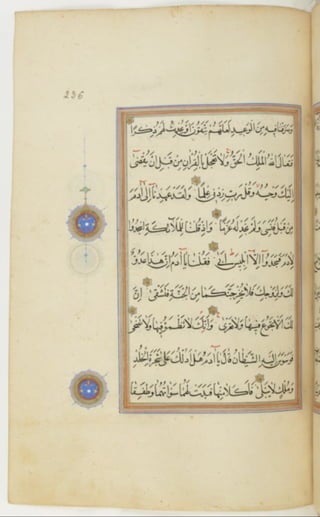 236
وَصَرَّفْنَا فِيهِ مِنَ الْوَعِيدِ لَعَلَّهُمْ يَتَّقُونَ أَوْ يُحْدِثُ لَهُمْ ذِكْرًا
فَتَعَالَى اللهُ الْمَلِكُ الْحَقُّ وَلَا تَعْجَلْ بِالْقُرْآنِ مِنْ قَبْلِ أَنْ يُقْضَى
إِلَيْكَ وَحْيُهُ وَقُلْ رَبِّ زِدْنِي عِلْمًا وَلَقَدْ عَهِدْنَا إِلَى آدَمَ
مِنْ قَبْلُ فَنَسِيَ وَلَمْ نَجِدْ لَهُ عَزْمًا وَإِذْ قُلْنَا لِلْمَلَائِكَةِ اسْجُدُوا
لِآدَمَ فَسَجَدُوا إِلَّا إِبْلِيسَ أَبَى فَقُلْنَا يَا آدَمُ إِنَّ هَذَا عَدُوٌّ
لَكَ وَلِزَوْجِكَ فَلَا يُخْرِجَنَّكُمَا مِنَ الْجَنَّةِ فَتَشْقَى إِنَّ
لَكَ أَلَّا تَجُوعَ فِيهَا وَلَا تَعْرَى وَأَنَّكَ لَا تَظْمَؤُ فِيهَا وَلَا تَضْحَى
فَوَسْوَسَ إِلَيْهِ الشَّيْطَانُ قَالَ يَا آدَمُ هَلْ أَدُلُّكَ عَلَى شَجَرَةِ الْخُلْدِ
وَمُلْكٍ لَا يَبْلَى فَأَكَلَا مِنْهَا فَبَدَتْ لَهُمَا سَوْآتُهُمَا وَطَفِقَا